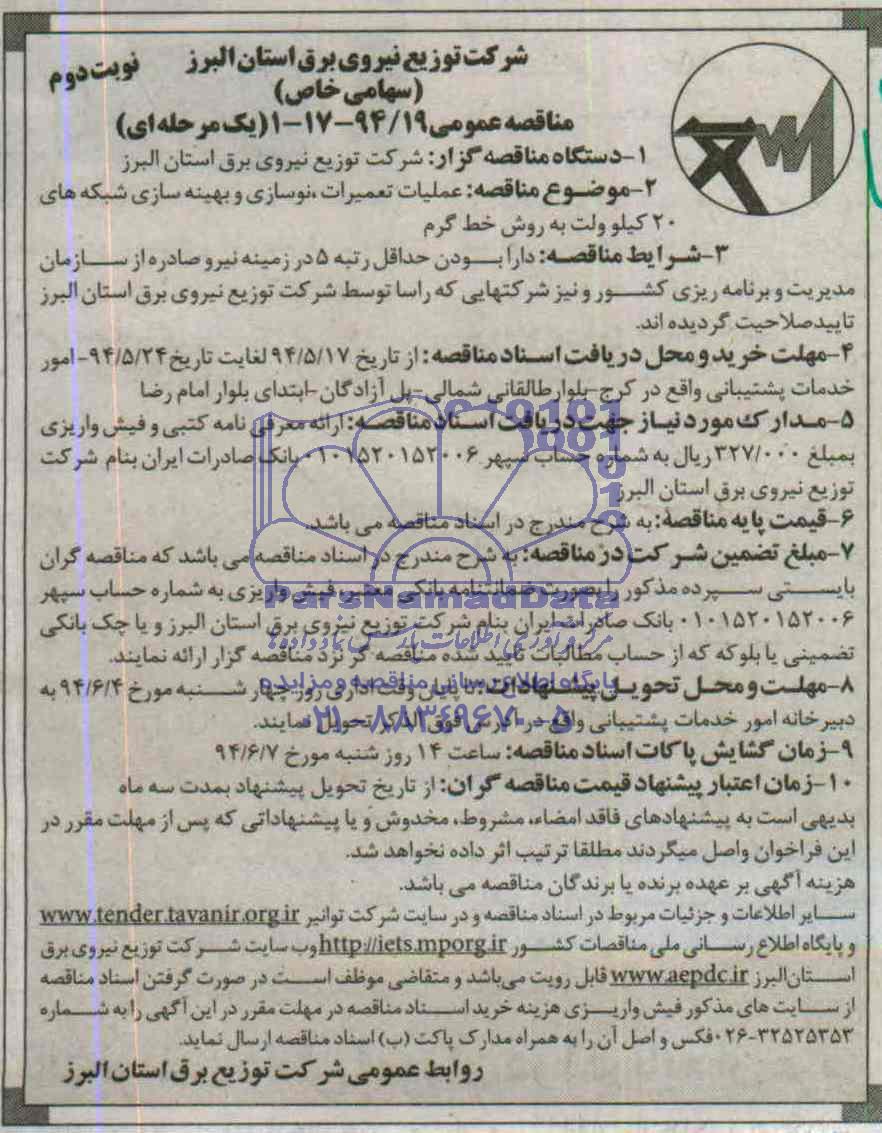 شرکت توزیع نیروی برق استان البرز
نوبت دوم
(سهامی خاص)
مناقصه عمومی ۹۴/۱۹-۱۷-۱ (یک مرحله ای)
۱-دستگاه مناقصه گزار: شرکت توزیع نیروی برق استان البرز
۲-موضوع مناقصه: عملیات تعمیرات ،نوسازی و بهینه سازی شبکه های
۲۰ کیلو ولت به روش خط گرم
۳-شرایط مناقصه: دارا بودن حداقل رتبه ۵ در زمینه نیرو صادره از سازمان
مدیریت و برنامه ریزی کشور و نیز شرکتهایی که راسا توسط شرکت توزیع نیروی برق استان البرز
تاییدصلاحیت گردیده اند.
۴-مهلت خرید و محل دریافت اسناد مناقصه: از تاریخ ۹۴/۵/۱۷ لغایت تاریخ ۹۴/۵/۲۴- امور
خدمات پشتیبانی واقع در کرج-بلوار طالقانی شمالی-پل آزادگان-ابتدای بلوار امام رضا
۵-مدارک مورد نیاز جهت دریافت اسناد مناقصه: ارائه معرفی نامه کتبی و فیش واریزی
بمبلغ ۳۲۷/۰۰۰ ریال به شماره حساب سپهر ۰۱۰۱۵۲۰۱۵۲۰۰۶ بانک صادرات ایران بنام شرکت
توزیع نیروی برق استان البرز
۶-قیمت پایه مناقصه: به شرح مندرج در اسناد مناقصه می باشد.
۷-مبلغ تضمین شرکت در مناقصه: به شرح مندرج در اسناد مناقصه می باشد که مناقصه گران
بایستی سپرده مذکور را بصورت ضمانتنامه بانکی معتبر، فیش واریزی به شماره حساب سپهر
۰۱۰۱۵۲۰۱۵۲۰۰۶ بانک صادرات ایران بنام شرکت توزیع نیروی برق استان البرز و یا چک بانکی
تضمینی یا بلوکه که از حساب مطالبات تایید شده مناقصه گر نزد مناقصه گزار ارائه نمایند.
۸-مهلت و محل تحویل پیشنهادات: تا پایان وقت اداری روز چهار شنبه مورخ ۹۴/۶/۴ به
دبیرخانه امور خدمات پشتیبانی واقع در آدرس فوق الذکر تحویل نمایند.
۹-زمان گشایش پاکات اسناد مناقصه: ساعت ۱۴ روز شنبه مورخ ۹۴/۶/۷
۱۰-زمان اعتبار پیشنهاد قیمت مناقصه گران: از تاریخ تحویل پیشنهاد بمدت سه ماه
بدیهی است به پیشنهادهای فاقد امضاء، مشروط، مخدوش و یا پیشنهاداتی که پس از مهلت مقرر در
این فراخوان واصل میگردند مطلقا ترتیب اثر داده نخواهد شد.
هزینه آگهی بر عهده برنده یا برندگان مناقصه می باشد.
سایر اطلاعات و جزئیات مربوط در اسناد مناقصه و در سایت شرکت توانیر www.tender.tavanir.org.ir
و پایگاه اطلاع رسانی ملی مناقصات کشور http://iets.mporg.ir وب سایت شرکت توزیع نیروی برق
استان البرز www.aepdc.ir قابل رویت می باشد و متقاضی موظف است در صورت گرفتن اسناد مناقصه
از سایت های مذکور فیش واریزی هزینه خرید اسناد مناقصه در مهلت مقرر در این آگهی را به شماره
۰۲۶-۳۲۵۲۵۳۵۳ فکس و اصل آن را به همراه مدارک پاکت (ب) اسناد مناقصه ارسال نماید.
روابط عمومی شرکت توزیع برق استان البرز
ParsNamadData
مرکز فرآوری اطلاعات پارس نماد داده ها
پایگاه اطلاع رسانی مناقصه و مزایده
۰۲۱-۸۸۳۴۹۶۷۰-۵